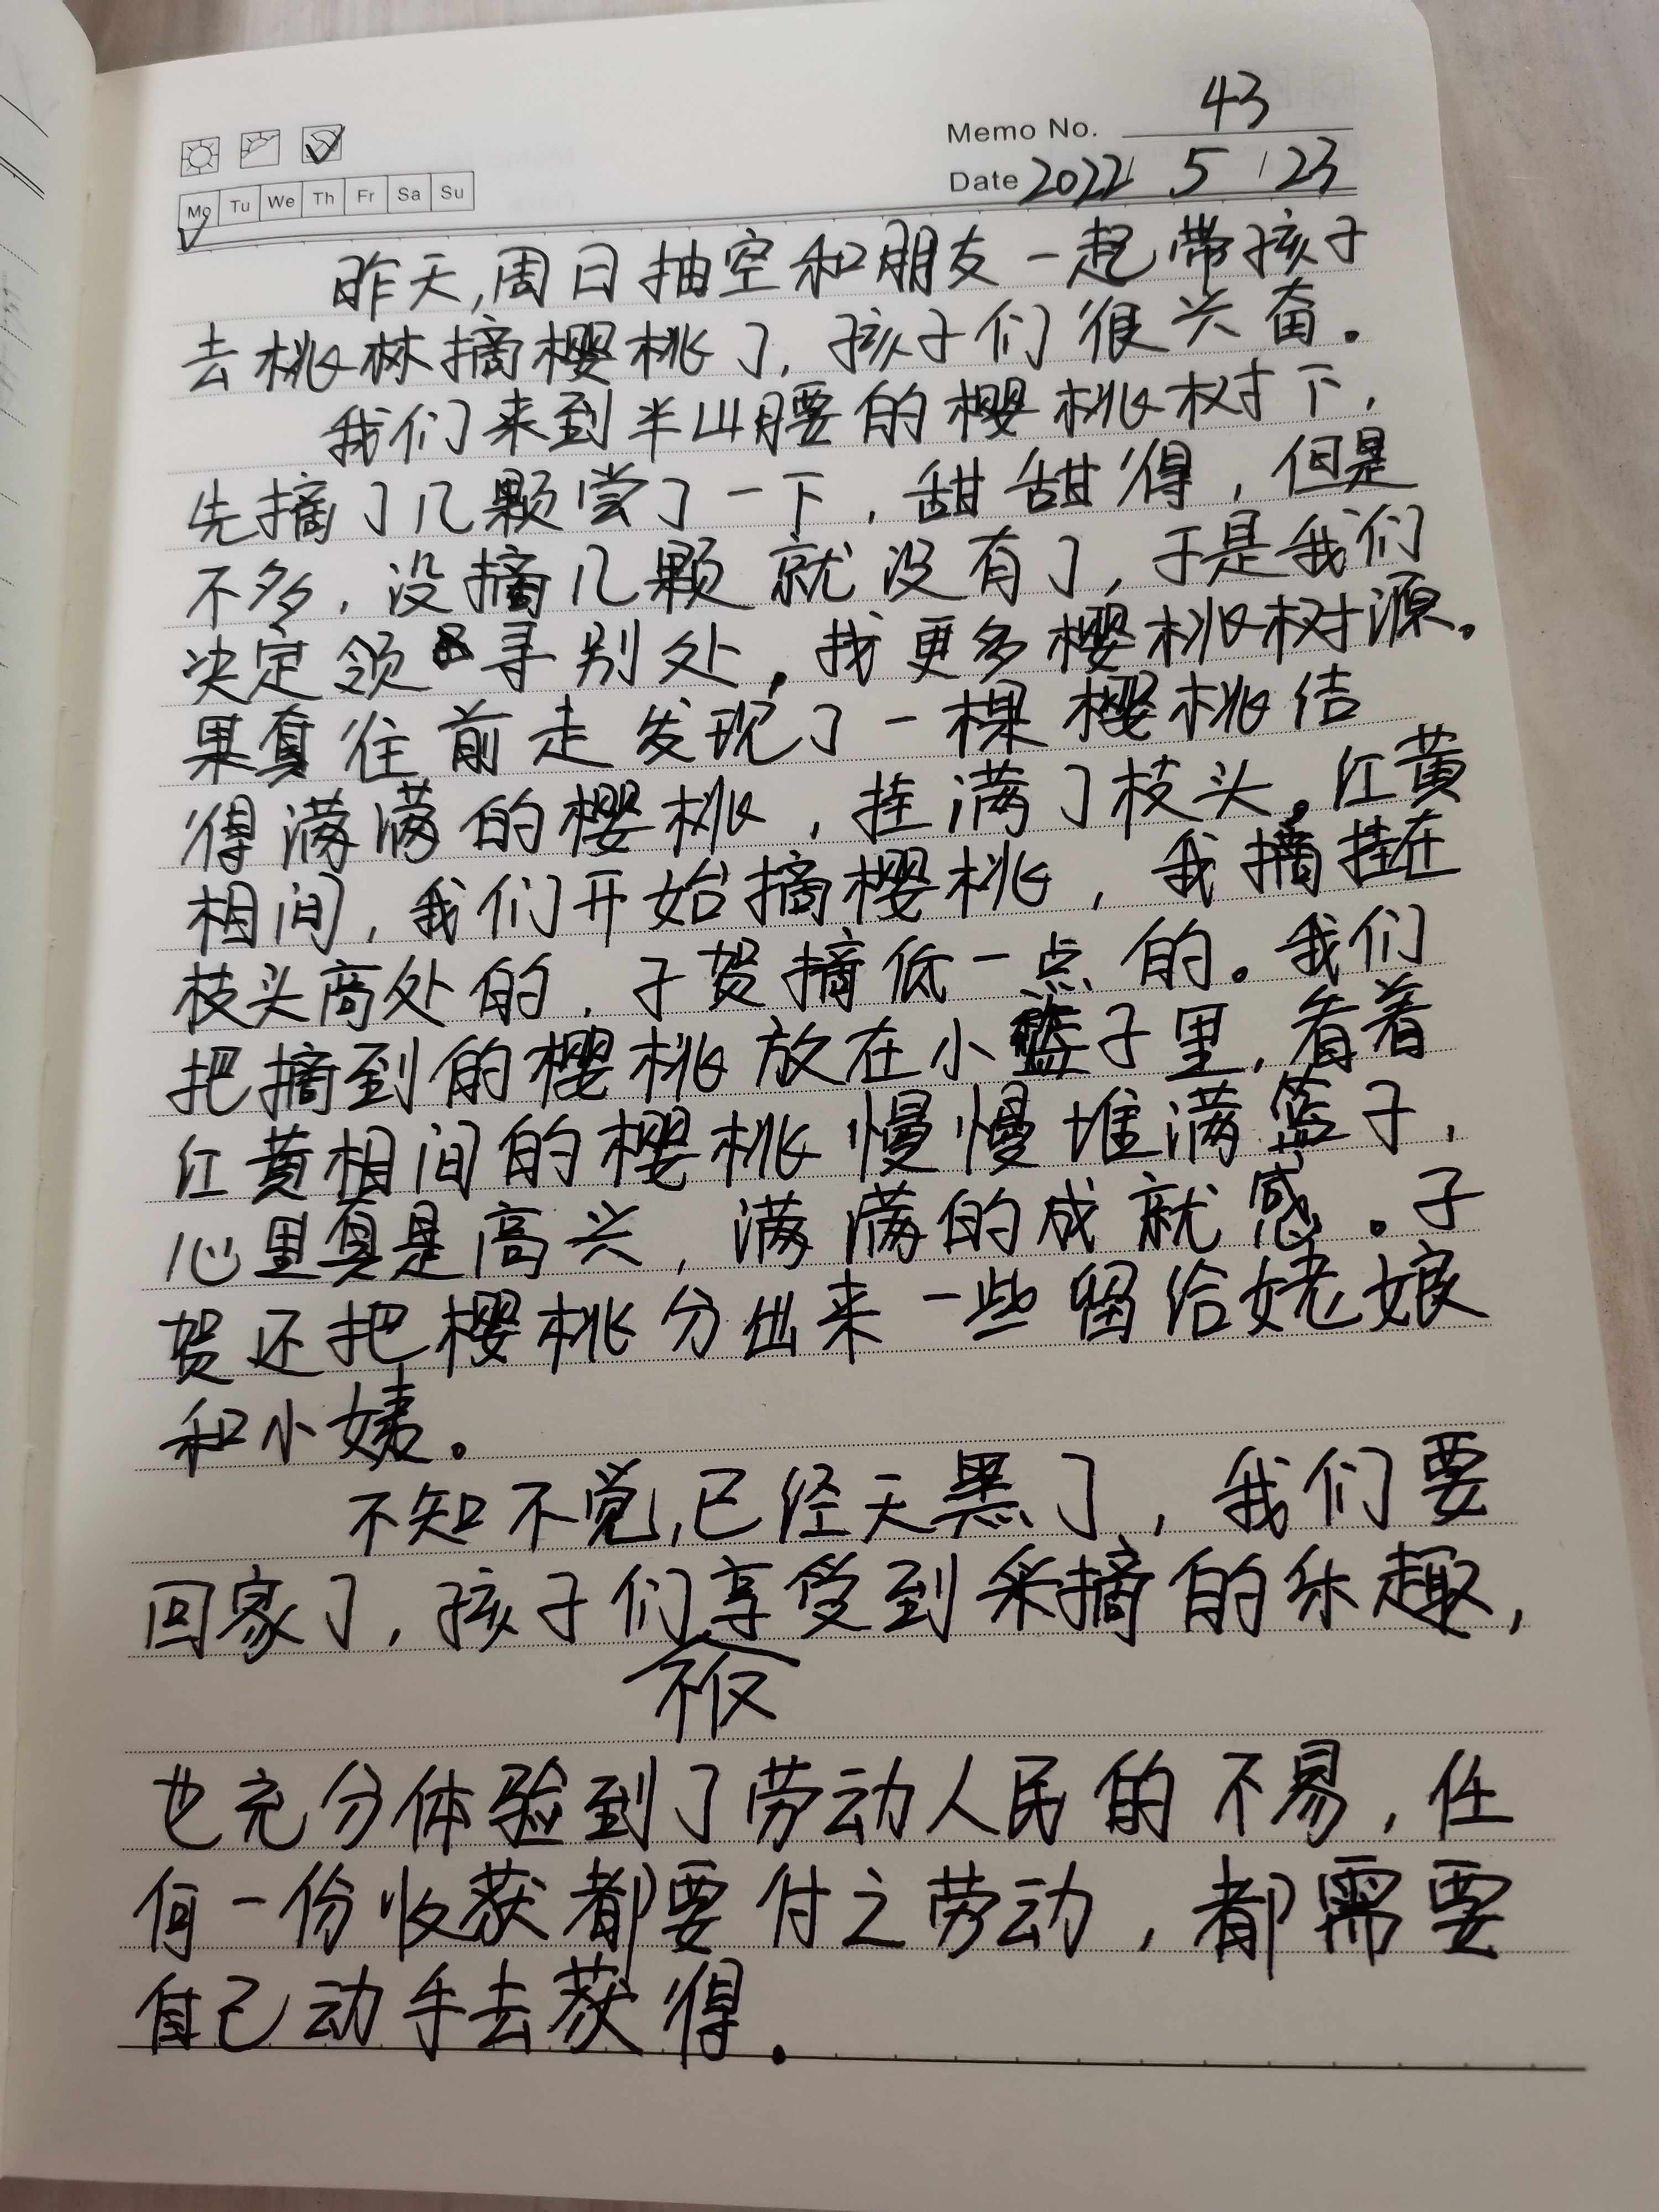 Memo No. 43
Mo Tu We Th Fr Sa Su
Date 2022 5 23
昨天,周日抽空和朋友一起带孩子
去桃林摘樱桃了,孩子们很兴奋。
我们来到半山腰的樱桃树下,
先摘了几颗尝了一下,甜甜得,但是
不多,没摘几颗就没有了,于是我们
决定领寻别处,找更多樱桃树源。
果真往前走发现了一棵樱桃结
得满满的樱桃,挂满了枝头。红黄
相间,我们开始摘樱桃,我摘挂在
枝头高处的,子贺摘低一点的。我们
把摘到的樱桃放在小篮子里,看着
红黄相间的樱桃慢慢堆满篮子,
心里真是高兴,满满的成就感。子
贺还把樱桃分出来一些留给姥娘
和小姨。
不知不觉,已经天黑了,我们要
回家了,孩子们享受到采摘的乐趣,
不仅
也充分体验到了劳动人民的不易,任
何一份收获都要付之劳动,都需要
自己动手去获得.